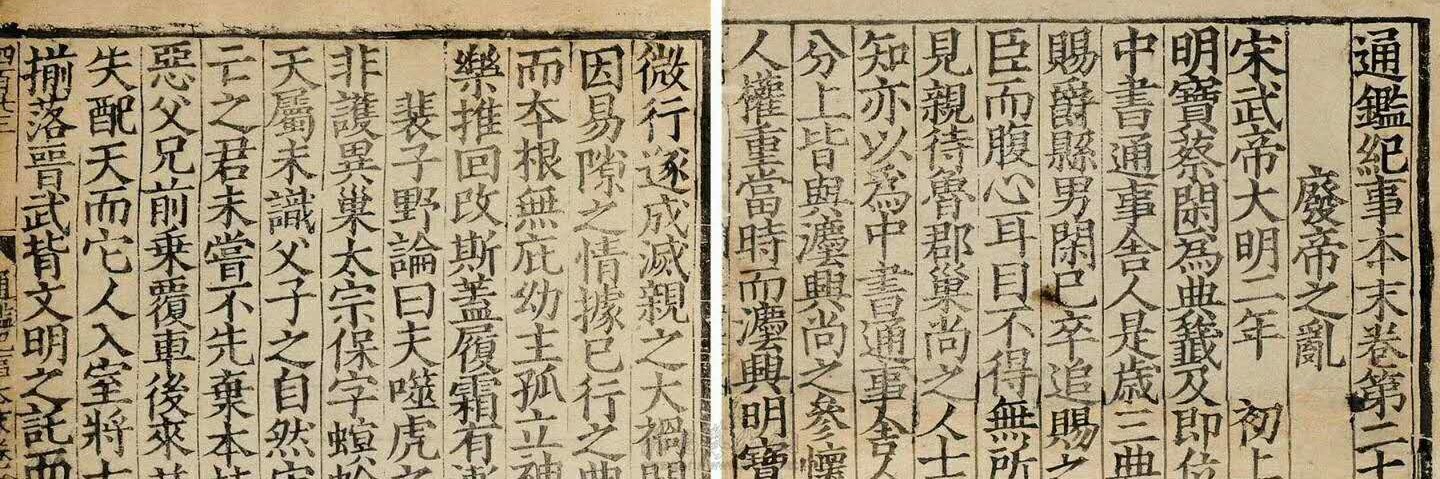 通鑑紀事本末卷第二十
廢帝之亂
宋武帝大明二年 初上
明寶蔡閑為典籤及即位
中書通事舍人是歲三典
賜爵縣男閑已卒追賜之
臣而腹心耳目不得無所
見親待魯郡巢尚之人士
知亦以為中書通事舍人
分上皆與灋興尚之參懷
人權重當時而灋興明寶
微行遂成滅親之大禍開
因易隙之情據已行之典
而本根無庇幼主孤立神
樂推回改斯蓋履霜有漸
裴子野論曰夫噬虎之
非護異巢太宗保字螟蛉
天屬未識父子之自然宋
亡之君未嘗不先棄本枝
惡父兄前乗覆車後來
失配天而它人入室將七
揃落晉武背文明之託而
四百廿三